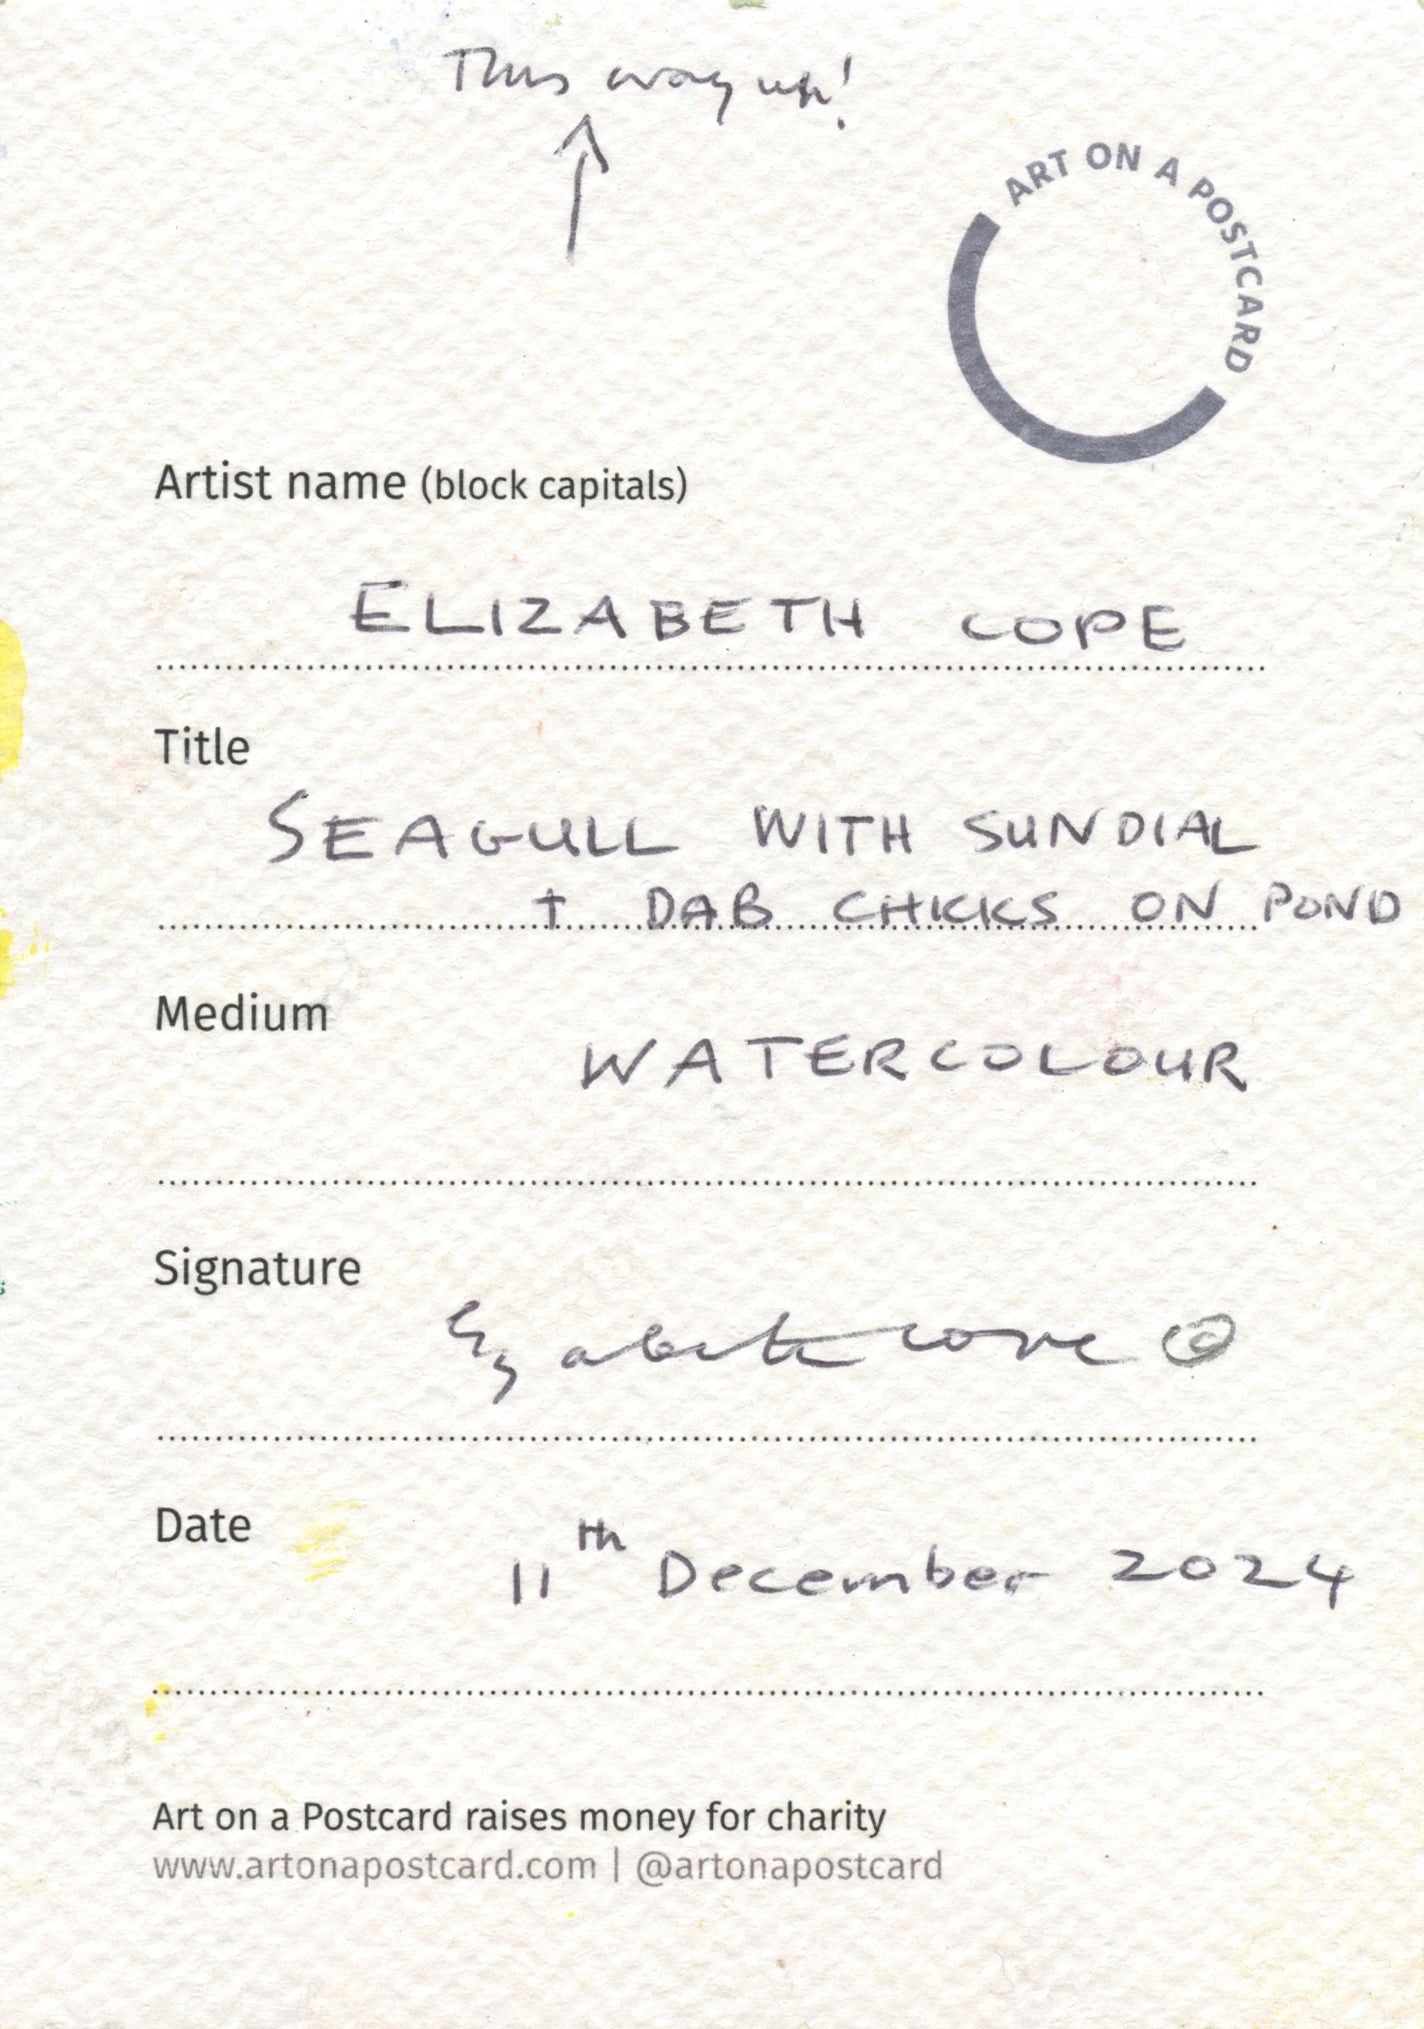 This way up!
ART ON A POSTCARD
Artist name (block capitals)
ELIZABETH COPE
Title
SEAGULL WITH SUNDIAL
+ DAB CHICKS ON POND
Medium
WATERCOLOUR
Signature
Elizabeth Cope
Date
11th December 2024
Art on a Postcard raises money for charity
www.artonapostcard.com | @artonapostcard